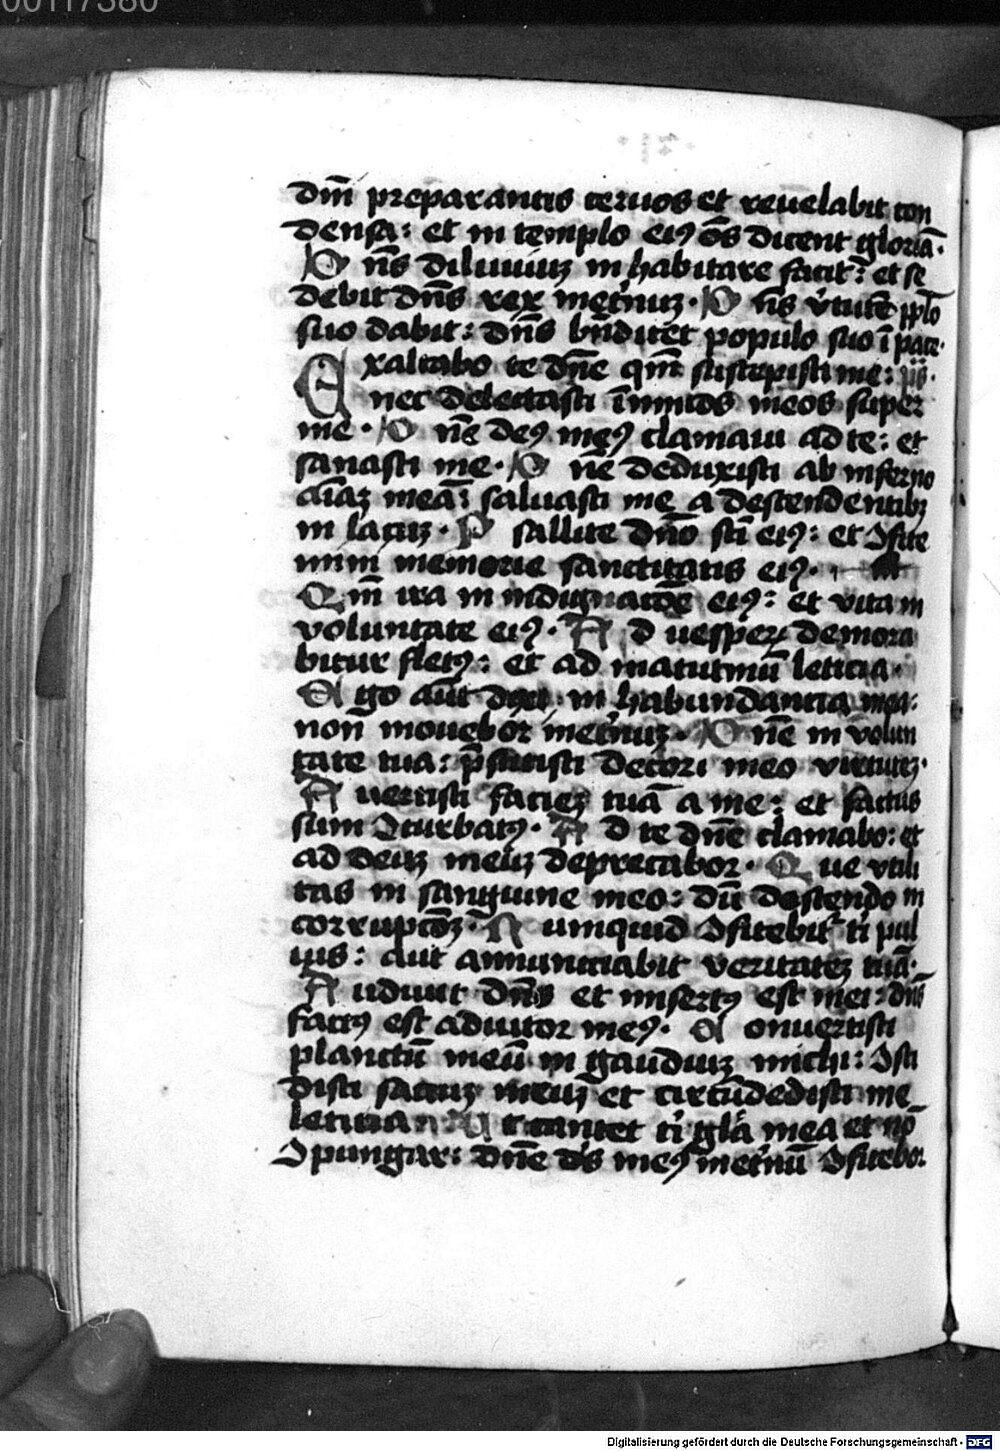 00117380
dm̄ preparantis ceruos et reuelabit con
densa: et in templo eiꝰ om̄s dicent gloriā.
Dn̄s diluuiuꝫ inhabitare facit: et se
debit dn̄s rex in et̄nuꝫ. Dn̄s v̓tutē pp̄lo
suo dabit: dn̄s bn̄dicet populo suo ī pace.
Exaltabo te dn̄e qm̄ suscepisti me:
nec delectasti īimicos meos super
me. Dn̄e deꝰ meꝰ clamaui ad te: et
sanasti me. Dn̄e deduxisti ab inferno
aīaꝫ meā: saluasti me a descendentibꝫ
in lacuꝫ. Psallite dn̄o sc̄i eiꝰ: et ꝯfite
mini memorie sanctitatis eiꝰ.
Qm̄ ira in indignatōe eiꝰ: et vita in
voluntate eiꝰ. Ad vesperꝫ demora
bitur fletꝰ: et ad matutinū leticia.
Ego aūt dixi in habundancia mea:
non mouebor in et̄nuꝫ. Dn̄e in volun
tate tua: p̄stitisti decori meo virtuteꝫ.
Auertisti facieꝫ tuā a me: et factus
sum ꝯturbatꝰ. Ad te dn̄e clamabo: et
ad deuꝫ meuꝫ deprecabor. Que vtili
tas in sanguine meo: dū descendo in
corrupcōꝫ. Numquid ꝯfitebit̓ ti̓ pul
uis: aut annunciabit veritateꝫ tuā.
Audiuit dn̄s et misertꝰ est mei: dn̄s
factꝰ est adiutor meꝰ. Conuertisti
planctū meū in gaudiuꝫ michi: ꝯsci
disti saccuꝫ meuꝫ et circūdedisti me
leticia Ut cantet ti̓ gl̄a mea et nō
ꝯpungar: dn̄e ds̄ meꝰ in et̓nū ꝯfitebor
Digitalisierung gefördert durch die Deutsche Forschungsgemeinschaft - DFG